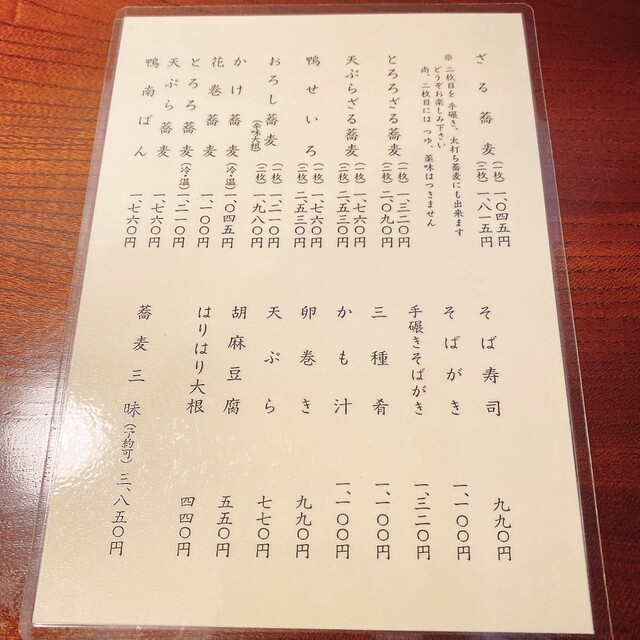 ざる蕎麦 (一枚) 一、〇四五円
(二枚) 一、八一五円
※ 二枚目を 手碾き、太打ち蕎麦にも出来ます
どうぞお楽しみ下さい
尚、二枚目には つゆ、薬味はつきません
とろろざる蕎麦 (一枚) 一、三二〇円
(二枚) 二、〇九〇円
天ぷらざる蕎麦 (一枚) 一、七六〇円
(二枚) 二、五三〇円
鴨せいろ (一枚) 一、七六〇円
(二枚) 二、五三〇円
おろし蕎麦 (辛味大根) (一枚) 一、二一〇円
(二枚) 一、九八〇円
かけ蕎麦 (冷・温) 一、〇四五円
花巻蕎麦 一、一〇〇円
とろろ蕎麦 (冷・温) 一、二一〇円
天ぷら蕎麦 一、七六〇円
鴨南ばん 一、七六〇円
そば寿司 九九〇円
そばがき 一、一〇〇円
手碾きそばがき 一、三二〇円
三種肴 一、一〇〇円
かも汁 一、一〇〇円
卵巻き 九九〇円
天ぷら 七七〇円
胡麻豆腐 五五〇円
はりはり大根 四四〇円
蕎麦三昧 (予約可) 三、八五〇円